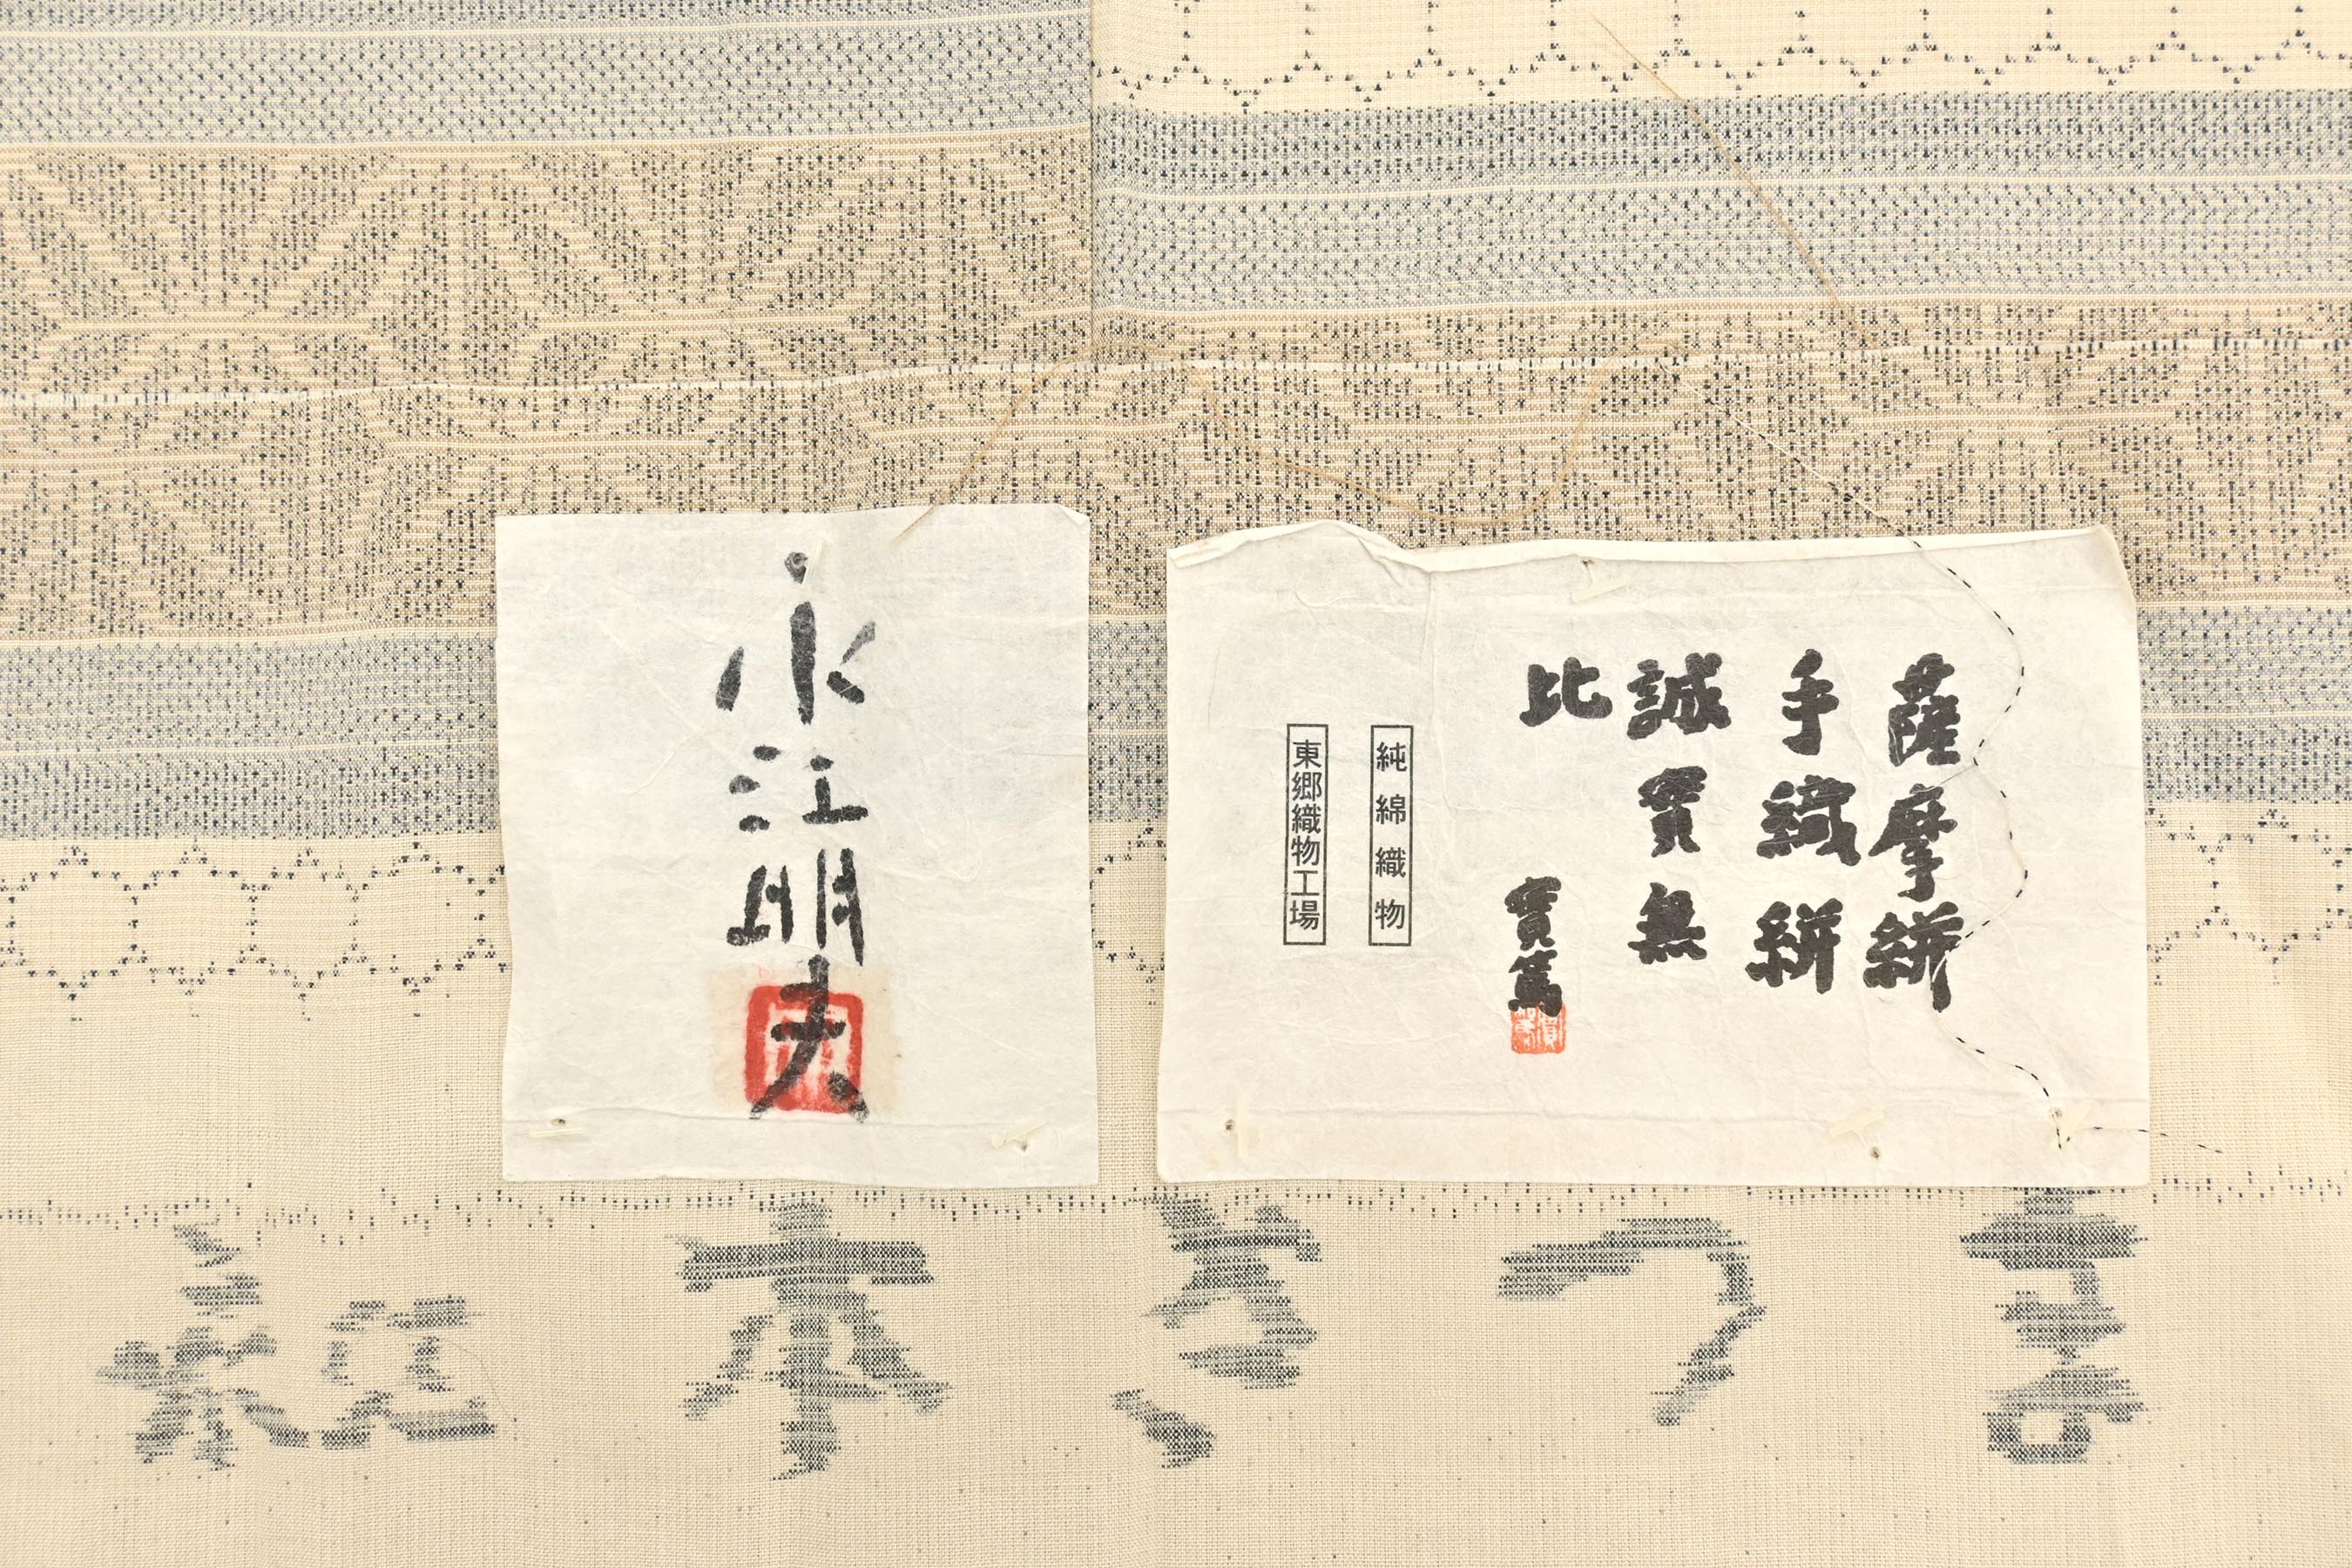 薩摩絣
手織絣
誠實無
比
實篤
純綿織物
東郷織物工場
永江明夫
本さつま